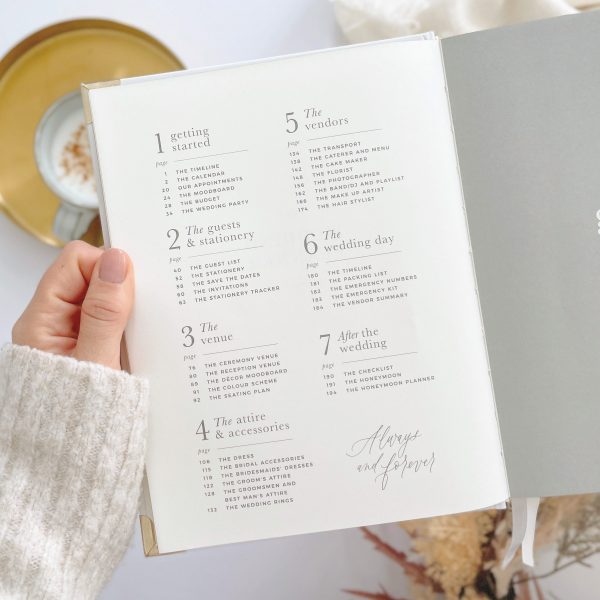 1 getting
started
page
1 THE TIMELINE
2 THE CALENDAR
20 OUR APPOINTMENTS
24 THE MOODBOARD
28 THE BUDGET
34 THE WEDDING PARTY
2 The guests
& stationery
page
40 THE GUEST LIST
52 THE STATIONERY
58 THE SAVE THE DATES
60 THE INVITATIONS
62 THE STATIONERY TRACKER
3 The
venue
page
76 THE CEREMONY VENUE
80 THE RECEPTION VENUE
90 THE DÉCOR MOODBOARD
91 THE COLOUR SCHEME
92 THE SEATING PLAN
4 The attire
& accessories
page
108 THE DRESS
115 THE BRIDAL ACCESSORIES
119 THE BRIDESMAIDS' DRESSES
122 THE GROOM'S ATTIRE
128 THE GROOMSMEN AND
BEST MAN'S ATTIRE
132 THE WEDDING RINGS
5 The
vendors
page
134 THE TRANSPORT
138 THE CATERER AND MENU
142 THE CAKE MAKER
148 THE FLORIST
156 THE PHOTOGRAPHER
162 THE BAND/DJ AND PLAYLIST
168 THE MAKE UP ARTIST
174 THE HAIR STYLIST
6 The
wedding day
page
180 THE TIMELINE
181 THE PACKING LIST
182 THE EMERGENCY NUMBERS
183 THE EMERGENCY KIT
184 THE VENDOR SUMMARY
7 After the
wedding
page
190 THE CHECKLIST
191 THE HONEYMOON
194 THE HONEYMOON PLANNER
Always
and forever